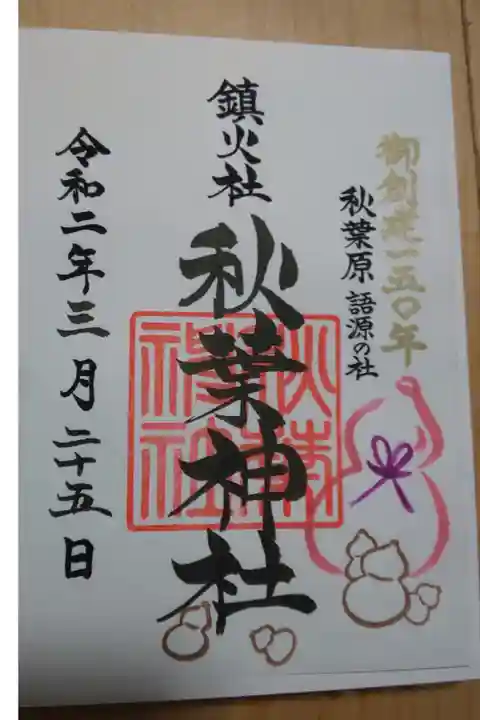 御創建一五〇年
秋葉原 語源の社
鎮火社
秋葉神社
令和二年三月二十五日